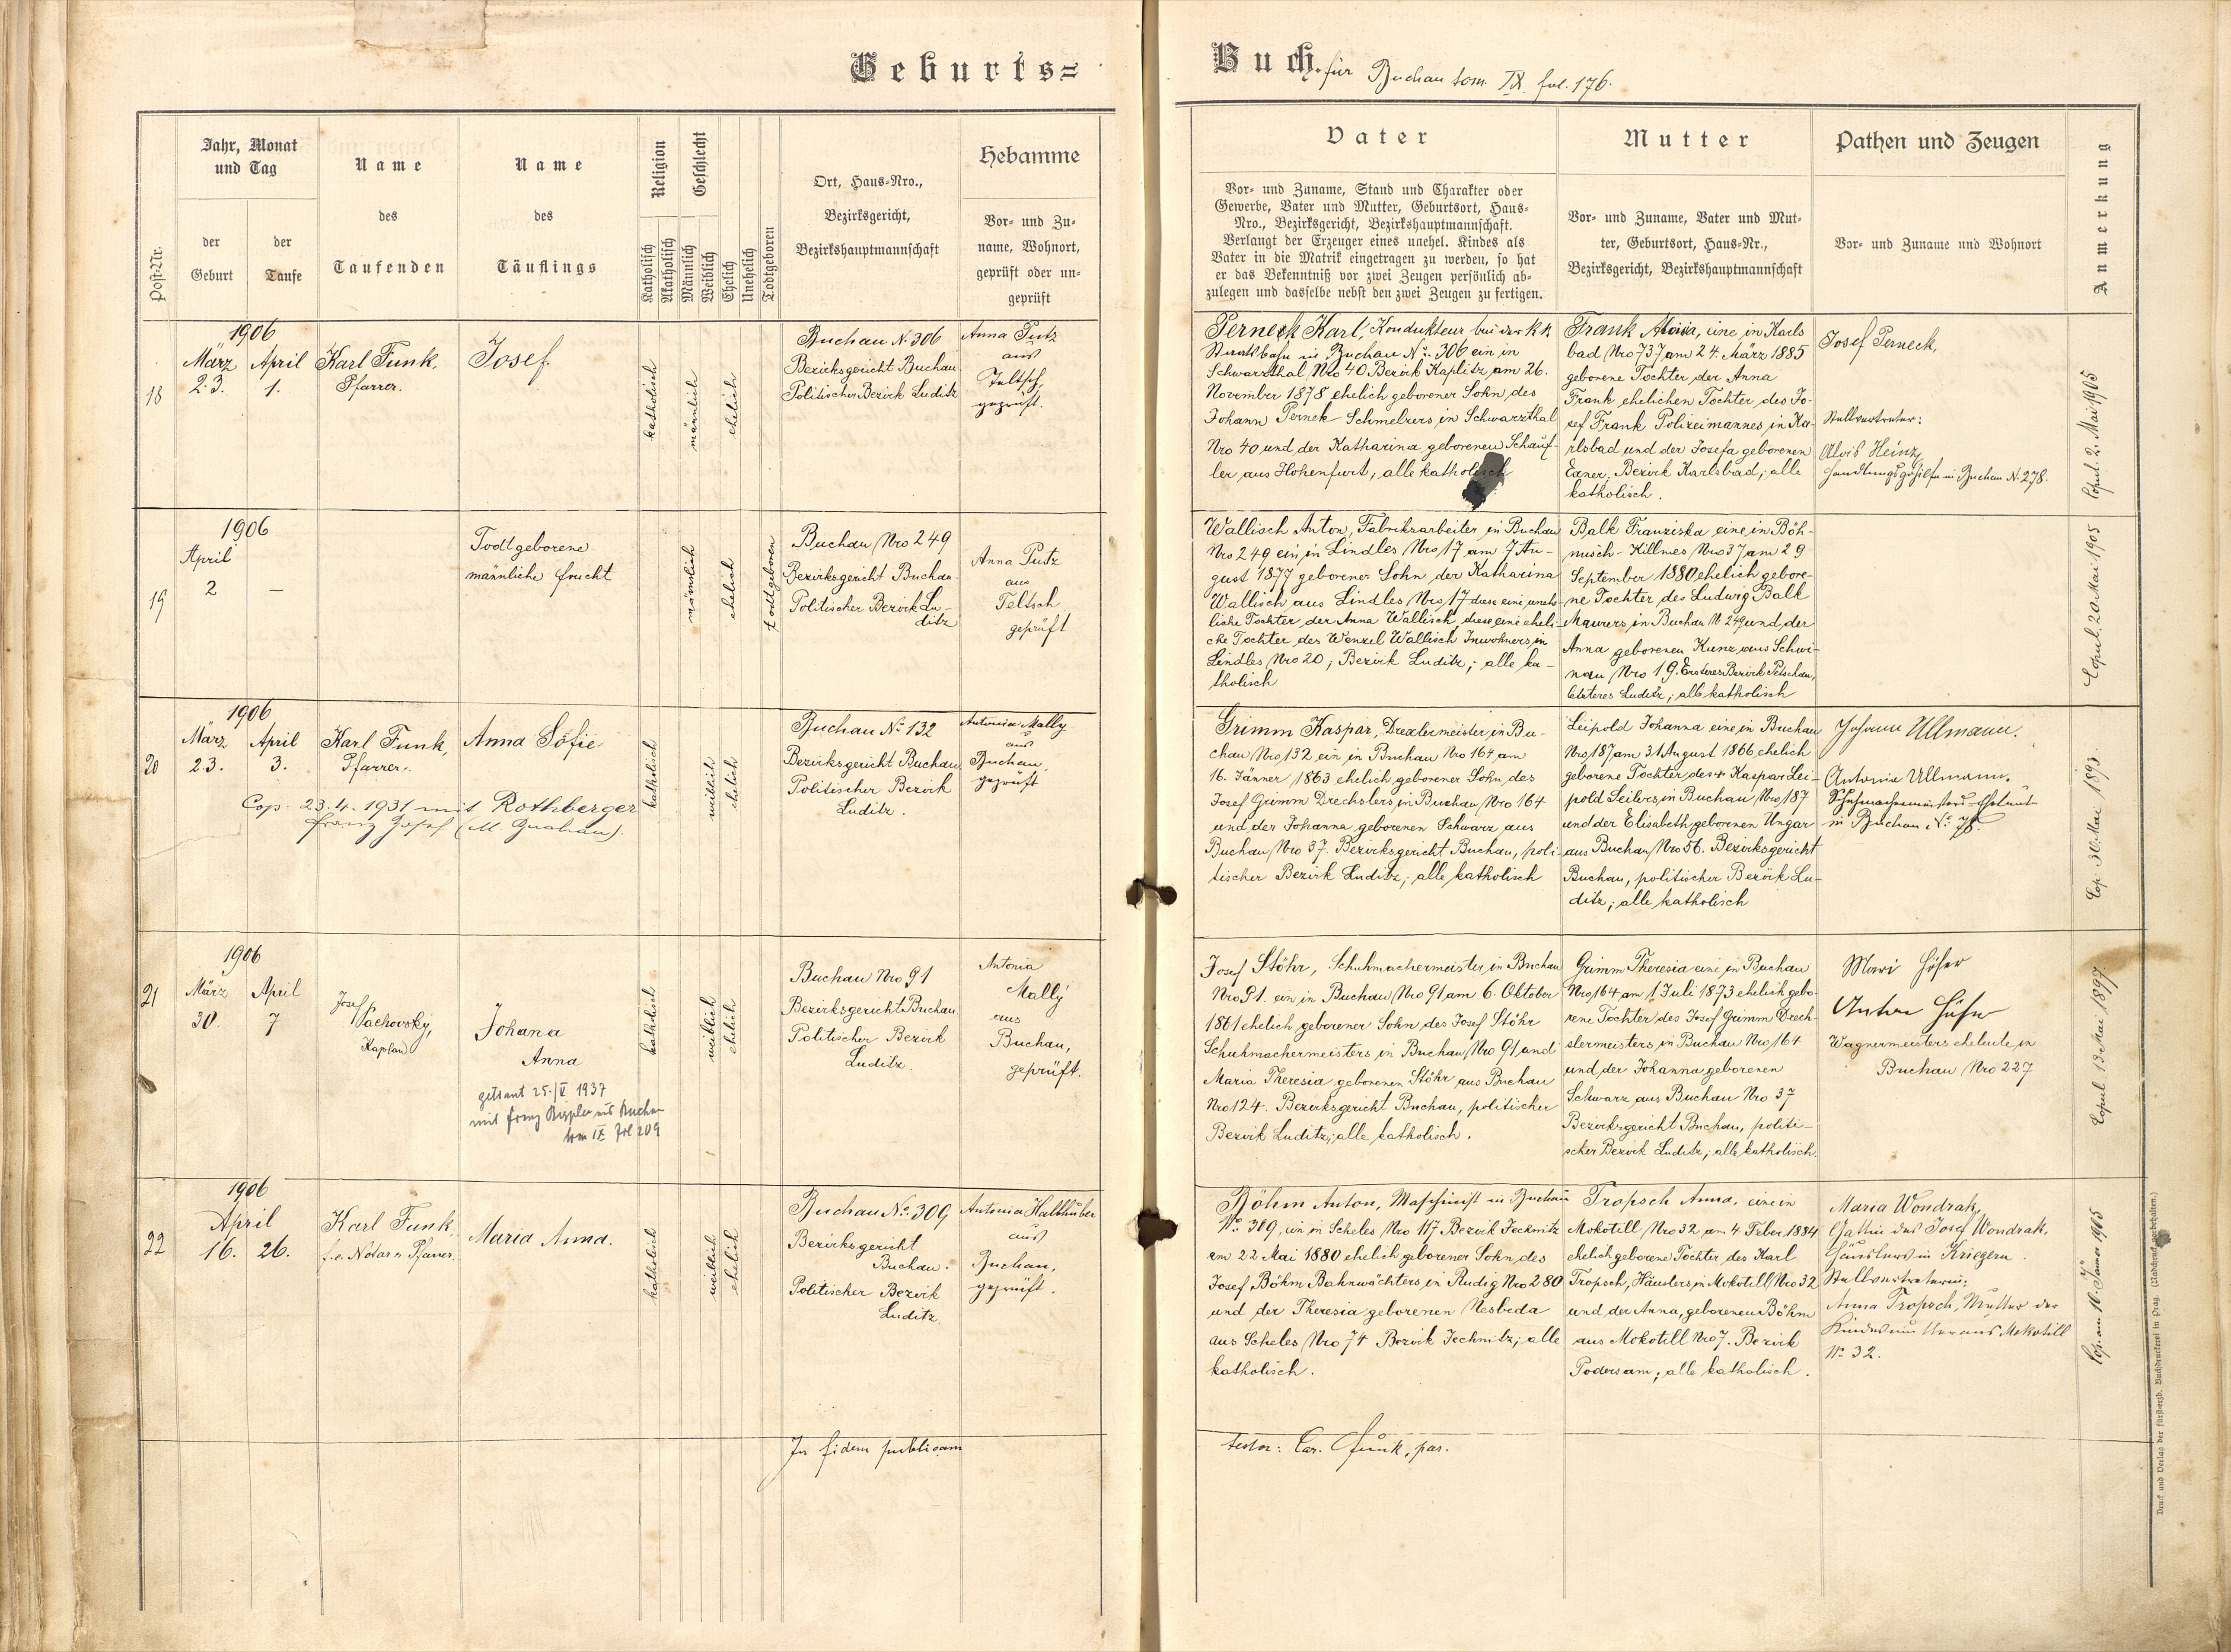 Geburts=
Buch. für Buchau tom. IX. fol. 176.
Post-Nr.
Jahr, Monat
und Tag
der
Geburt
der
Taufe
Name
des
Taufenden
Name
des
Täuflings
Religion
Katholisch
Akatholisch
Geschlecht
Männlich
Weiblich
Ehelich
Unehelich
Todtgeboren
Ort, Haus-Nro.,
Bezirksgericht,
Bezirkshauptmannschaft
Hebamme
Vor- und Zu-
name, Wohnort,
geprüft oder un-
geprüft
Vater
Vor- und Zuname, Stand und Charakter oder
Gewerbe, Vater und Mutter, Geburtsort, Haus-
Nro., Bezirksgericht, Bezirkshauptmannschaft.
Verlangt der Erzeuger eines unehel. Kindes als
Vater in die Matrik eingetragen zu werden, so hat
er das Bekenntniß vor zwei Zeugen persönlich ab-
zulegen und dasselbe nebst den zwei Zeugen zu fertigen.
Mutter
Vor- und Zuname, Vater und Mut-
ter, Geburtsort, Haus-Nr.,
Bezirksgericht, Bezirkshauptmannschaft
Pathen und Zeugen
Vor- und Zuname und Wohnort
Anmerkung
18
1906
März
23.
April
1.
Karl Funk,
Pfarrer.
Josef.
katholisch
männlich
ehelich
Buchau N. 306
Bezirksgericht Buchau
Politischer Bezirk Luditz
Anna Putz
aus
Teltsch,
geprüft.
Perneck Karl, Kondukteur bei der kk
Staatsbahn in Buchau No. 306 ein in
Schwarzthal Nro 40 Bezirk Kaplitz am 26.
November 1878 ehelich geborener Sohn des
Johann Pernek Schmelzers in Schwarzthal
Nro 40 und der Katharina geborenen Schauf-
ler aus Hohenfurt, alle katholisch
Frank Aloisia, eine in Karls
bad Nro 737 am 24. März 1885
geborene Tochter der Anna
Frank ehelichen Tochter des Jo-
sef Frank Polizeimannes in Ka-
rlsbad und der Josefa geborenen
Exner, Bezirk Karlsbad; alle
katholisch.
Josef Perneck,
Stellvertreter:
Alois Heinz,
Handlungsgehilfe in Buchau N. 278.
Copul. 2. Mai 1905
19
1906
April
2
—
Todtgeborene
männliche Frucht
männlich
ehelich
todtgeboren
Buchau Nro 249
Bezirksgericht Buchau
Politischer Bezirk Lu-
ditz
Anna Putz
aus
Teltsch
geprüft
Wallisch Anton, Fabriksarbeiter in Buchau
Nro 249 ein in Lindles Nro 17 am 7 Au-
gust 1877 geborener Sohn der Katharina
Wallisch aus Lindles Nro 17 diese eine unehe-
liche Tochter der Anna Wallisch, diese eine eheli-
che Tochter des Wenzel Wallisch Inwohners in
Lindles Nro 20, Bezirk Luditz; alle ka-
tholisch
Balk Franziska eine in Böh-
misch-Killmes Nro 37 am 29
September 1880 ehelich gebore-
ne Tochter des Ludwig Balk
Maurers in Buchau N 249 und der
Anna geborenen Kunz aus Schwi-
nau Nro 19. Ersteres Bezirk Petschau,
letzteres Luditz; alle katholisch
Copul. 20. Mai 1905
20
1906
März
23.
April
3.
Karl Funk,
Pfarrer.
Anna Sofie
Cop. 23.4.1931 mit Rothberger
Franz Josef (M. Buchau).
katholisch
weiblich
ehelich
Buchau No 132
Bezirksgericht Buchau
Politischer Bezirk
Luditz.
Antonia Mally
aus
Buchau,
geprüft
Grimm Kaspar, Drexlermeister in Bu-
chau Nro 132 ein in Buchau Nro 164 am
16. Jänner 1863 ehelich geborener Sohn des
Josef Grimm Drechslers in Buchau Nro 164
und der Johanna geborenen Schwarz aus
Buchau Nro 37. Bezirksgericht Buchau, poli-
tischer Bezirk Luditz; alle katholisch
Leipold Johanna eine in Buchau
Nro 187 am 31 August 1866 ehelich
geborene Tochter des + Kaspar Lei-
pold Seilers in Buchau Nro 187
und der Elisabeth geborenen Ungar
aus Buchau Nro 56. Bezirksgericht
Buchau, politischer Bezirk Lu-
ditz; alle katholisch
Johann Ullmann.
Antonie Ullmann.
Schuhmachermeisters-Eheleute
in Buchau No 78.
Cop. 30. Mai 1893.
21
1906
März
30.
April
7
Josef
Pachovsky,
Kaplan
Johana
Anna
getraut 25./V 1937
mit Franz aus Buchau
tom IX fol 209
katholisch
weiblich
ehelich
Buchau Nro 91
Bezirksgericht Buchau
Politischer Bezirk
Luditz.
Antonia
Mally
aus
Buchau,
geprüft.
Josef Stöhr, Schuhmachermeister in Buchau
Nro 91. ein in Buchau Nro 91 am 6. Oktober
1861 ehelich geborener Sohn des Josef Stöhr
Schuhmachermeisters in Buchau Nro 91 und
Maria Theresia geborenen Stöhr aus Buchau
Nro 124. Bezirksgericht Buchau, politischer
Bezirk Luditz; alle katholisch.
Grimm Theresia eine in Buchau
Nro 164 am 1 Juli 1873 ehelich gebo-
rene Tochter des Josef Grimm Drech-
slermeisters in Buchau Nro 164
und der Johanna geborenen
Schwarz aus Buchau Nro 37
Bezirksgericht Buchau, politi-
scher Bezirk Luditz; alle katholisch.
Mari Höfer
Anton Höfer
Wagnermeisters eheleute in
Buchau Nro 227
Copul. 13 Mai 1897.
22
1906
April
16.
26.
Karl Funk,
f.e. Notar u. Pfarrer.
Maria Anna.
katholisch
weiblich
ehelich
Buchau No. 309
Bezirksgericht
Buchau.
Politischer Bezirk
Luditz.
Antonia Halbhuber
aus
Buchau,
geprüft.
Böhm Anton, Maschinist in Buchau
No. 309, ein in Scheles Nro 117, Bezirk Jechnitz
am 22 Mai 1880 ehelich geborener Sohn des
Josef Böhm Bahnwächters in Rudig Nro 280
und der Theresia geborenen Nesbeda
aus Scheles Nro 74 Bezirk Jechnitz; alle
katholisch.
Tropsch Anna, eine in
Mokotill Nro 32 am 4. Feber 1884
ehelich geborene Tochter des Karl
Tropsch, Häuslers in Mokotill Nro 32
und der Anna, geborenen Böhm
aus Mokotill Nro 7. Bezirk
Podersam; alle katholisch.
Maria Wondrak,
Gattin des Josef Wondrak,
Häuslers in Kriegern
Stellvertreterin:
Anna Tropsch, Mutter der
Kindesmutter aus Mokotill
No 32.
Cop. am 10. Jänner 1905
In fidem publicam
testor: Car. Funk, par.
Druck und Verlag der fürsterzb. Buchdruckerei in Prag. (Nachdruck vorbehalten.)